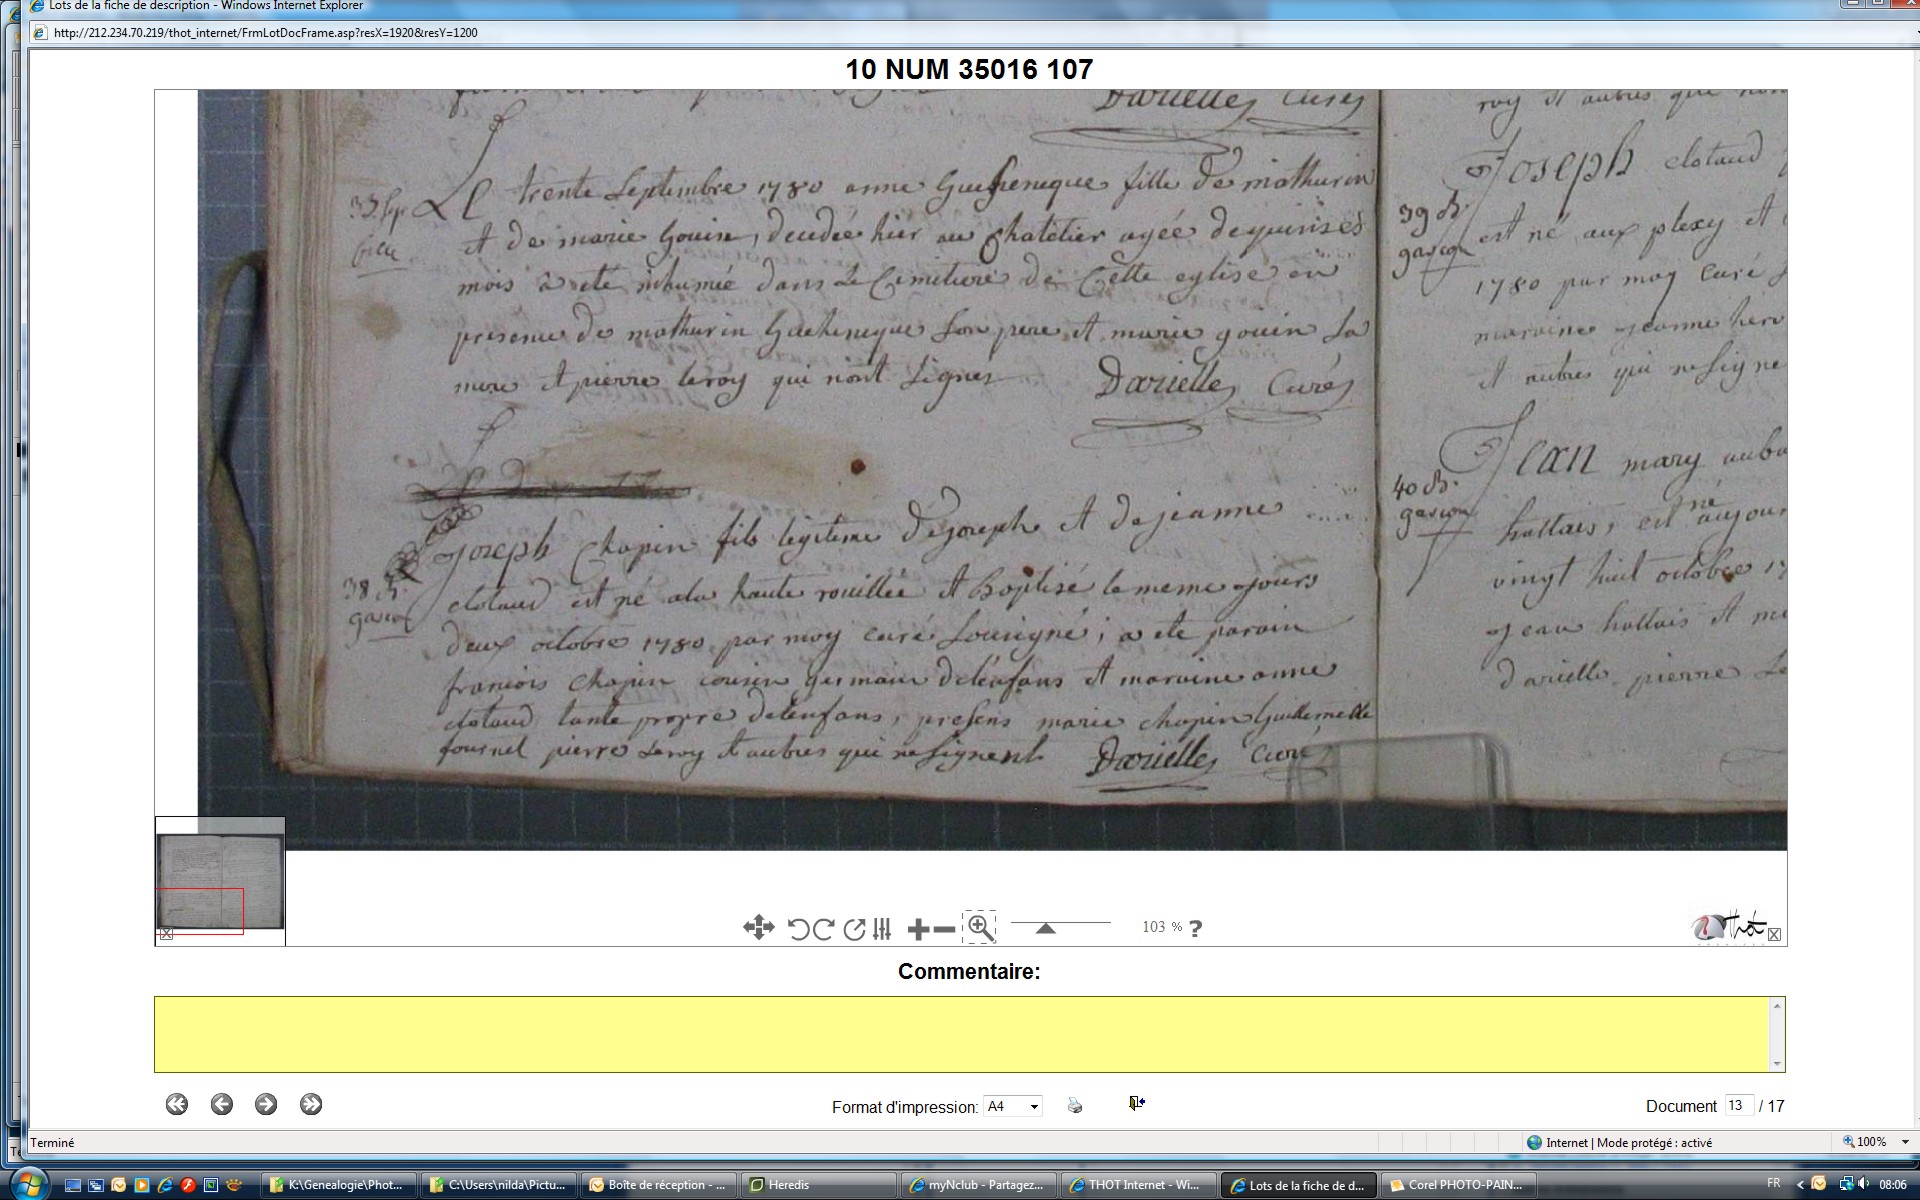 Lots de la fiche de description - Windows Internet Explorer
http://212.234.70.219/thot_internet/FrmLotDocFrame.asp?resX=1920&resY=1200
10 NUM 35016 107
Darielle Curé
Le trente Septembre 1780 anne Gueheneque fille de mathurin
et de marie Gouin, decedée hier au Chatelier agée de quinses
mois a ete inhumée dans Le Cimetiere de Cette eglise en
presence de mathurin Gueheneque Son pere, et marie gouin Sa
mere et pierre leroy qui nont Signes Darielle Curé
38 B.
garcon
Joseph Chopin fils legitime de joseph et de jeanne
clotaud est né a la haute rouillée et Baptisé le meme Jours
deux octobre 1780 par moy curé Sousigné; a ete parain
francois Chopin cousin germain delenfans et maraine anne
clotaud tante propre delenfans, presens marie chopin Guillemette
fournel pierre Leroy et autres qui ne Signent Darielle Curé
roy et autres que
Joseph clotaud
39 B.
garcon
est né aux plexy et
1780 par moy curé
maraine Jeanne
et autres qui ne Signe
Jean mary
40 B.
garcon
hallais, est né aujour
vingt huit octobre 17
Jean hallais et
darielle pierre Le
103 %
?
Thot
Commentaire:
Format d'impression: A4
Document 13 / 17
Terminé
Internet | Mode protégé : activé
100%
K:\Genealogie\Phot...
C:\Users\nilda\Pictu...
Boîte de réception - ...
Heredis
myNclub - Partagez...
THOT Internet - Wi...
Lots de la fiche de d...
Corel PHOTO-PAIN...
FR
08:06